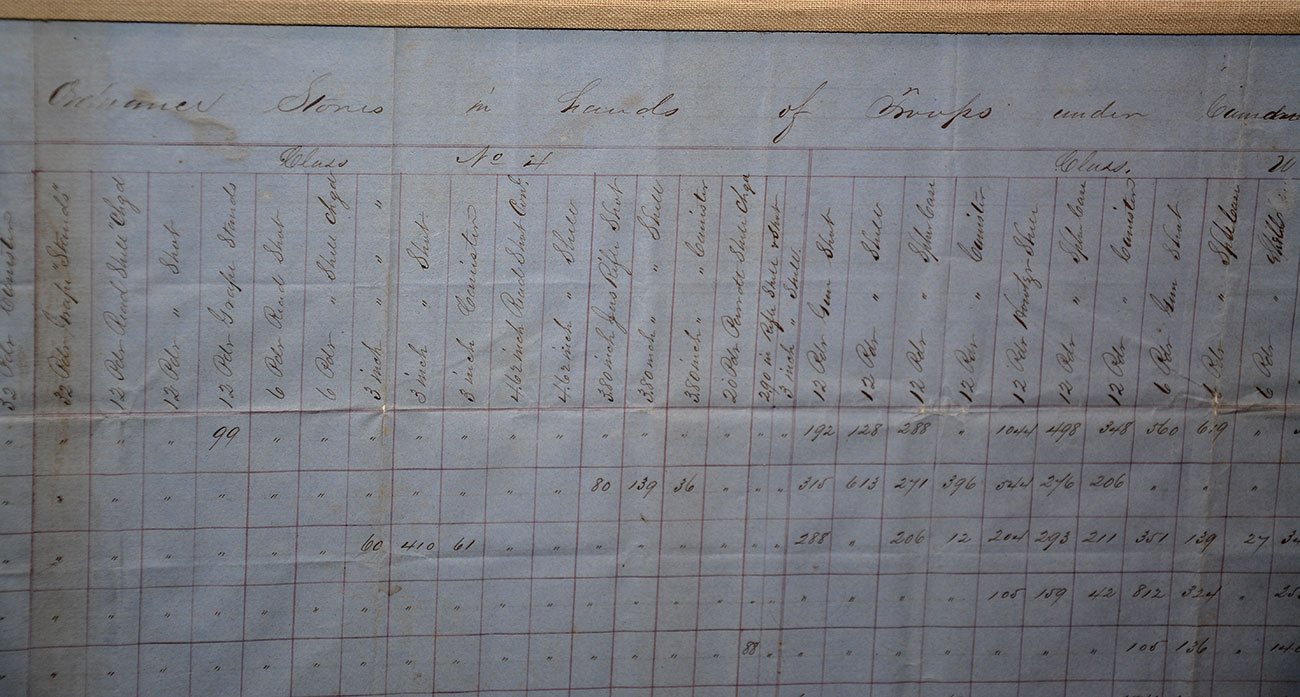 Ordnance Stores in hands of Troops under
Class No 4 Class.
32 Pdr Canister
32 Pdr Grape "Stands"
12 Pdr Rend Shell Chgd
12 Pdr " Shot
12 Pdr Grape Stands
6 Pdr Rend Shot
6 Pdr " Shell Chgd
3 inch " " "
3 inch " Shot
3 inch Canister
4.62 inch Read Shot
4.62 inch " Shell
3.80 inch Rifle Shot
3.80 inch " Shell
3.80 inch " Canister
20 Pdr Parrott Shell Chgd
2.90 in Rifle Shell & Shot
3 inch " Shell
12 Pdr Gun Shot
12 Pdr " Shell
12 Pdr " Sphr Case
12 Pdr " Canister
12 Pdr Howtzr Shell
12 Pdr " Sphr Case
12 Pdr " Canister
6 Pdr Gun Shot
6 Pdr " Sph Case
6 Pdr "
" " " " 99 " " " " " " " " " " " " " 192 128 288 " 1044 498 348 560 "
" " " " " " " " " " " " 80 139 36 " " " 315 613 271 396 544 276 206 " " "
" " " " " " " 60 410 61 " " " " " " " " 288 " 206 12 204 293 211 351 139 27
" " " " " " " " " " " " " " " " " " " " " " 105 159 42 812 324 "
" " " " " " " " " " " " " " " 88 " " " " " " " " 105 136 "